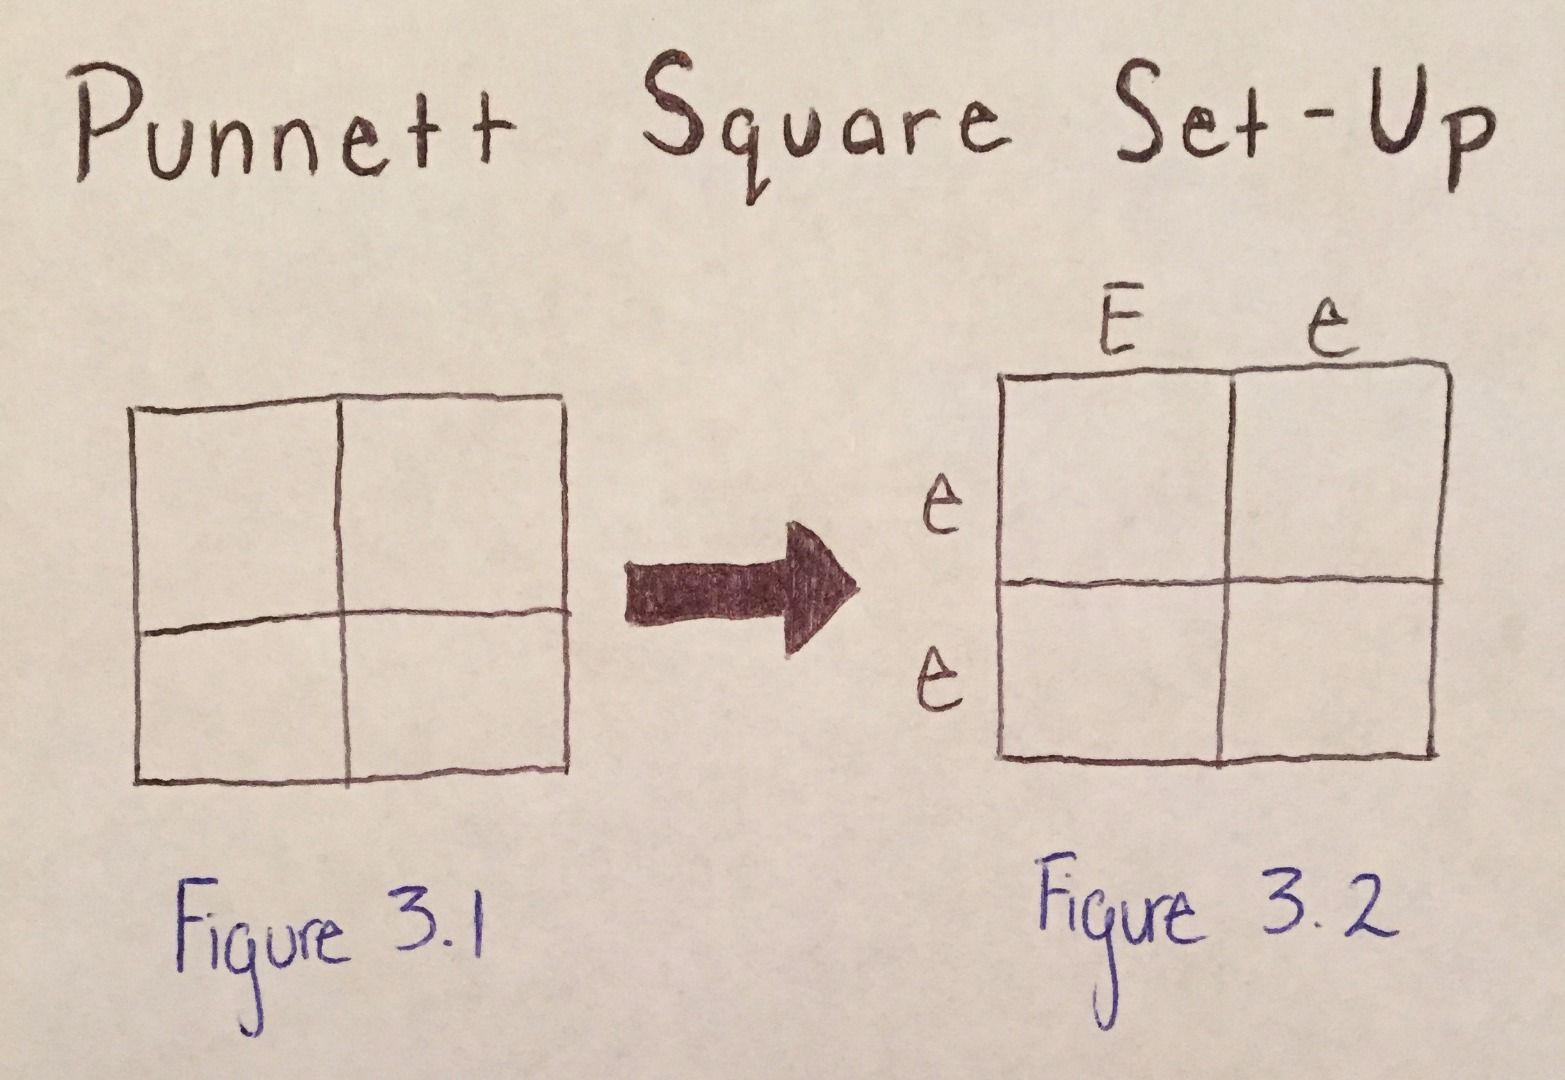 Punnett Square Set-Up
E e
e
e
Figure 3.1 Figure 3.2